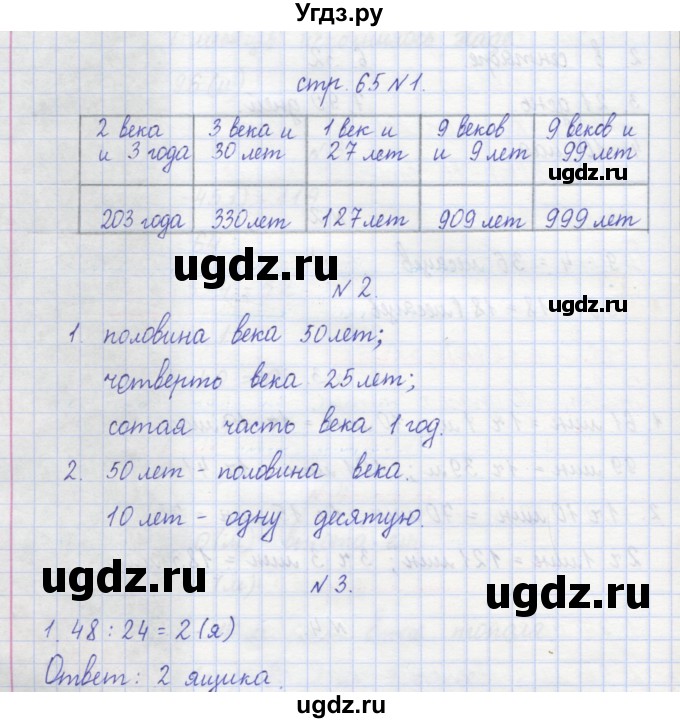 Угдз.ру
стр. 65 №1.
2 века 3 века и 1 век и 9 веков 9 веков и
и 3 года 30 лет 27 лет и 9 лет 99 лет
ugdz.ru
203 года 330 лет 127 лет 909 лет 999 лет
ugdz.ru ugdz.ru
№ 2.
1. половина века 50 лет;
четверть века 25 лет;
сотая часть века 1 год.
2. 50 лет - половина века.
10 лет - одну десятую.
ugdz.ru ugdz.ru
№ 3.
1. 48 : 24 = 2 (я)
Ответ: 2 ящика.
ugdz.ru